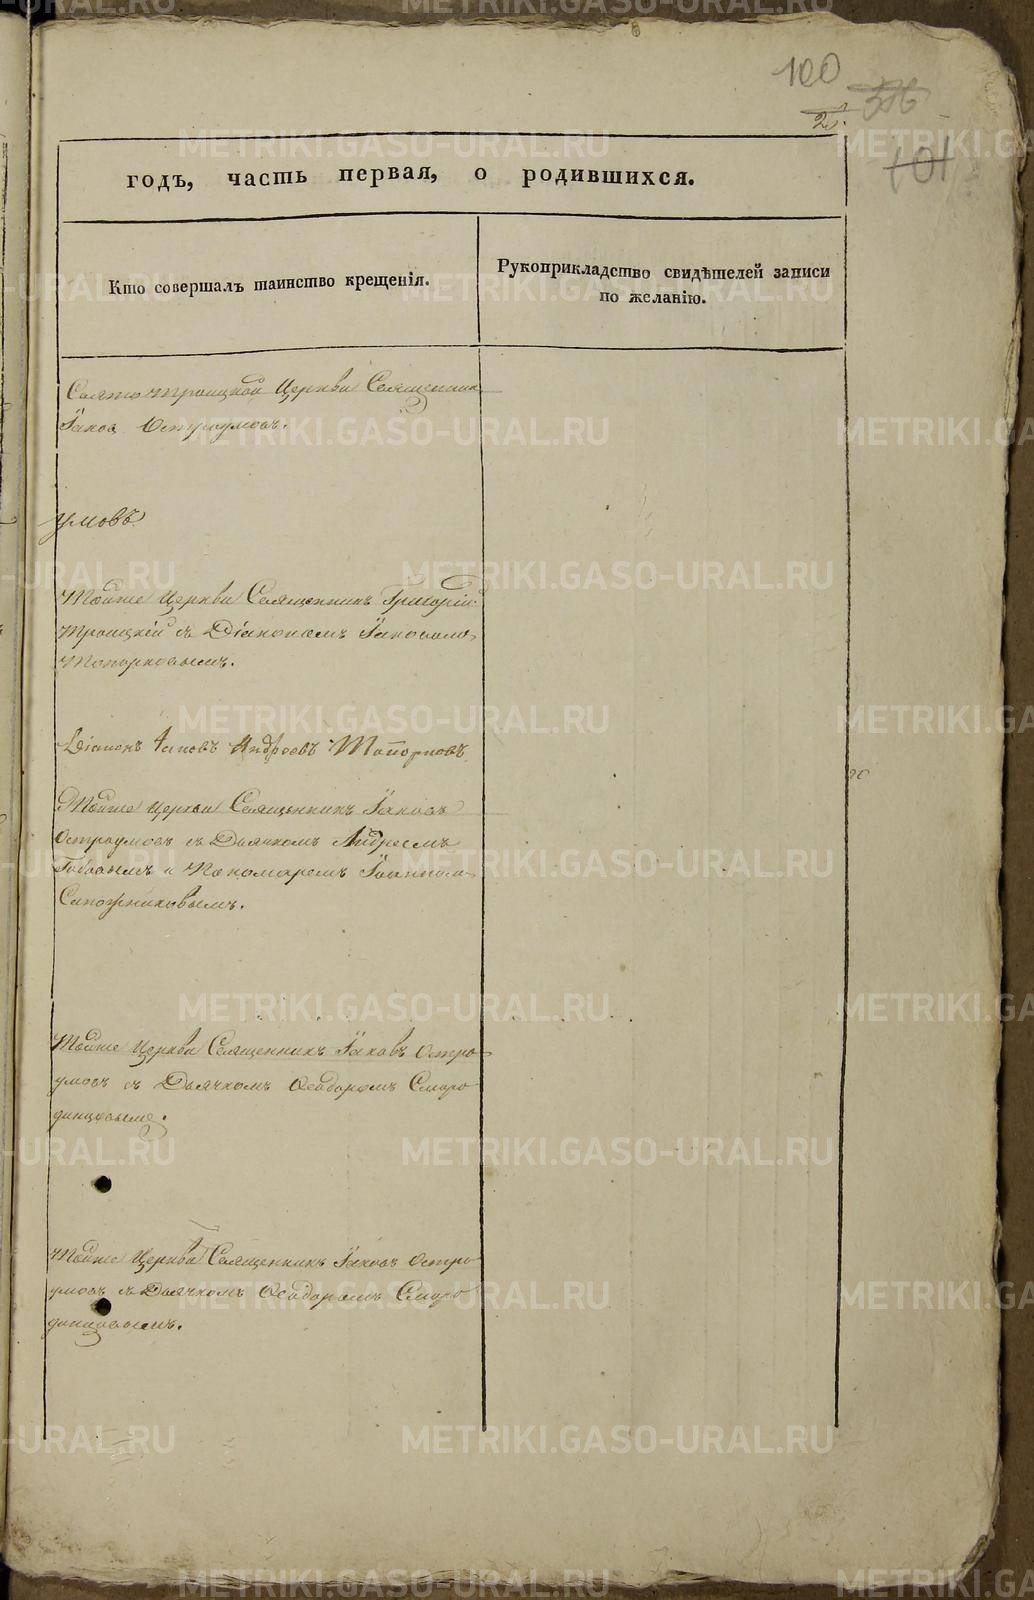 100
2
516
101
годъ, часть первая, о родившихся.
Кто совершалъ таинство крещенія.
Рукоприкладство свидѣтелей записи
по желанію.
Свято Троицкой Церкви Священник
Іаковъ Остроумовъ.
умовъ
Тойже Церкви Священникъ Григорій
Троицкій съ Діакономъ Іаковомъ
Топорковымъ.
Діаконъ Іаковъ Андреевъ Топорковъ
Тойже Церкви Священникъ Іаковъ
Остроумовъ съ Дьячкомъ Андреемъ
и Пономаремъ Іоанномъ
Сапожниковымъ.
Тойже Церкви Священникъ Іаковъ Остро
умовъ съ Дьячкомъ Ѳеодоромъ Сморо
динцовымъ.
Тойже Церкви Священникъ Іаковъ Остро
умовъ съ Дьячкомъ Ѳеодоромъ Сморо
динцовымъ.
METRIKI.GASO-URAL.RU